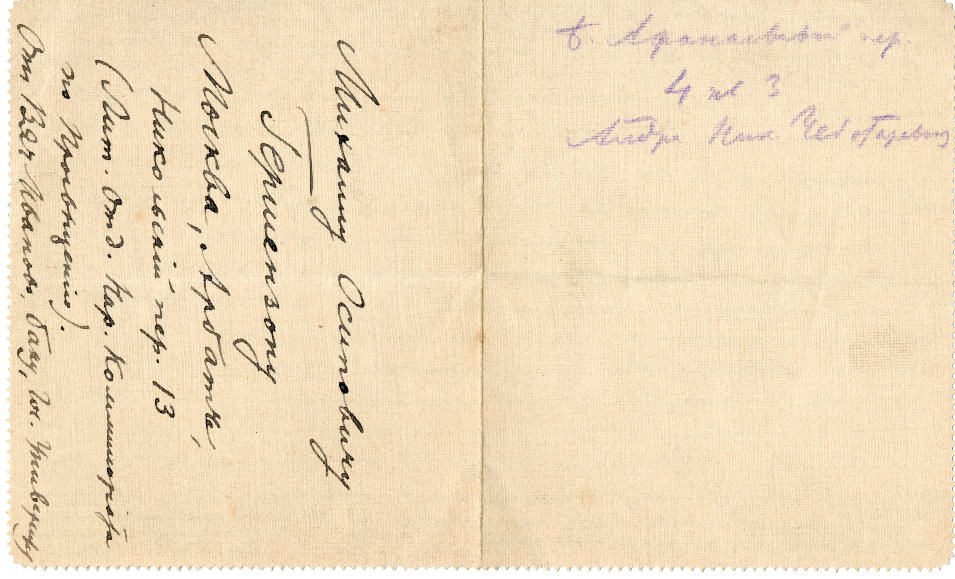 Михаилу Осиповичу
Гершензону
Москва, Арбатъ,
Никольскій пер. 13
(Лит. Отд. Нар. Коммисарiата
по Просвѣщенію).
Отъ Вяч. Иванова, Баку,
Б. Афанасьевский пер.
4 кв 3
Андре Ник Чеботаревич